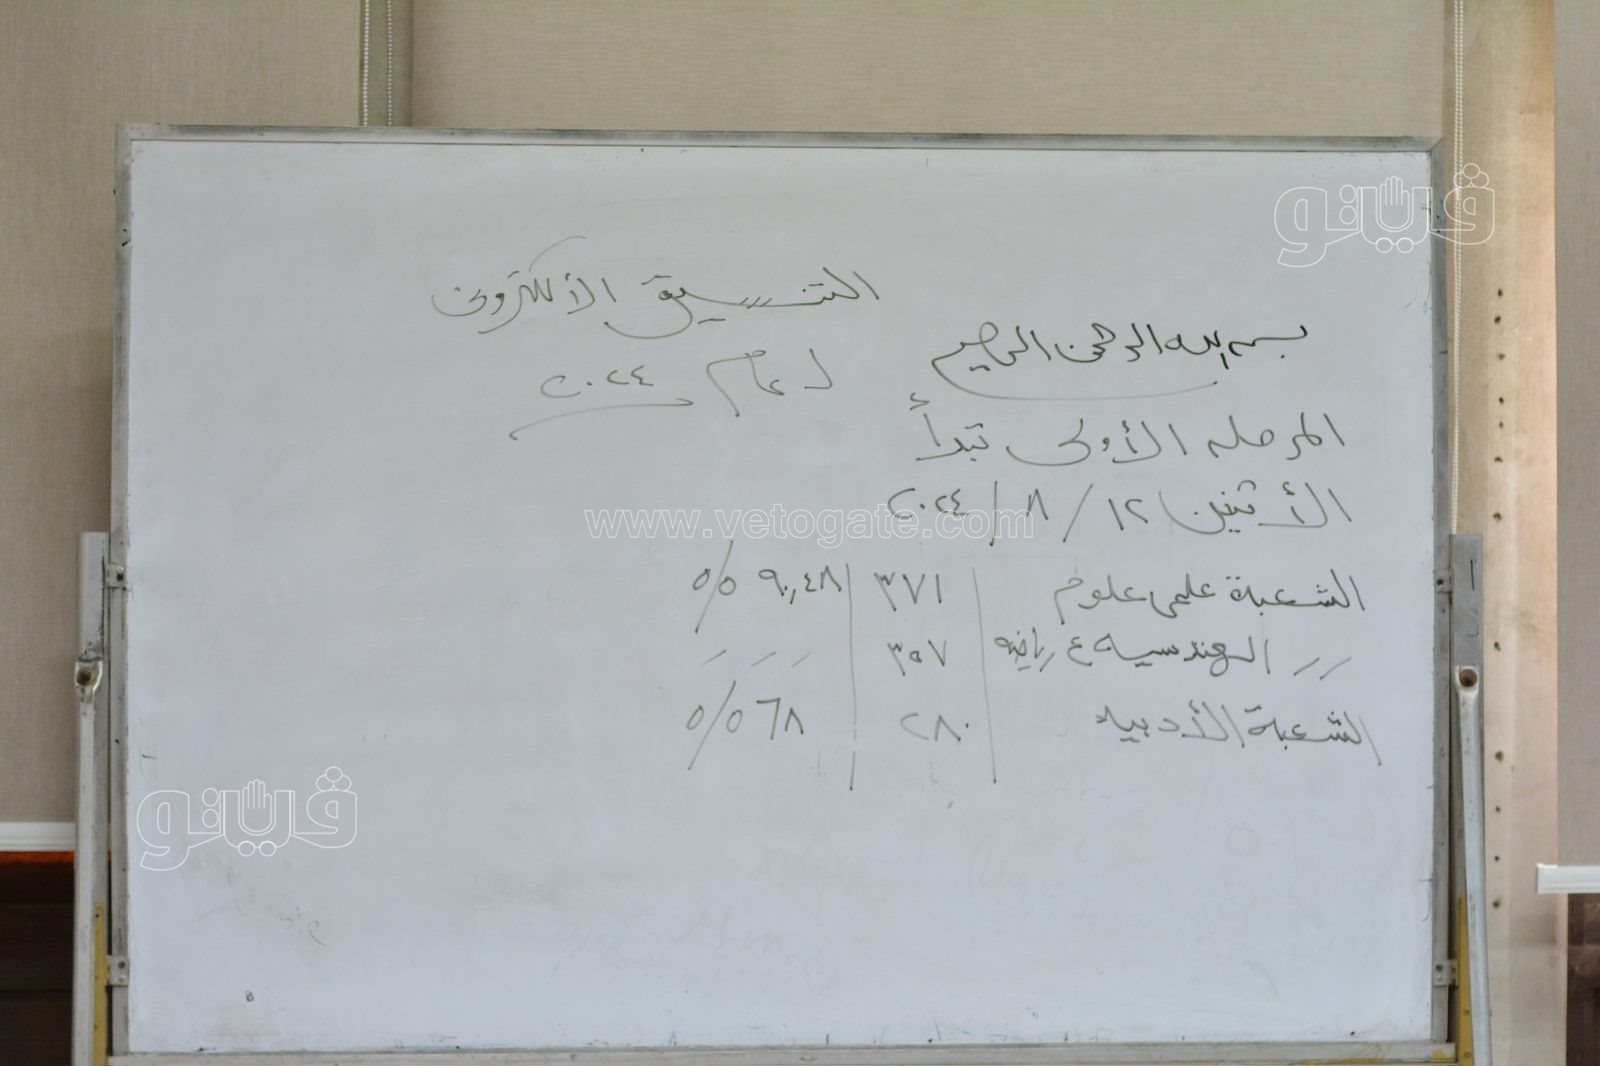 فيتو
التنسيق الألكترونى
بسم الله الرحمن الرحيم
لعام ٢٠٢٤
المرحله الأولى تبدأ
الأثنين ١٢ / ٨ / ٢٠٢٤
www.vetogate.com
الشعبة علمى علوم | ٣٧١ | ٩٠,٤٨ ٥/٥
〃 الهندسيه ع رياضه | ٣٥٧ | - - -
الشعبة الأدبيه | ٢٨٠ | ٦٨ ٥/٥
فيتو